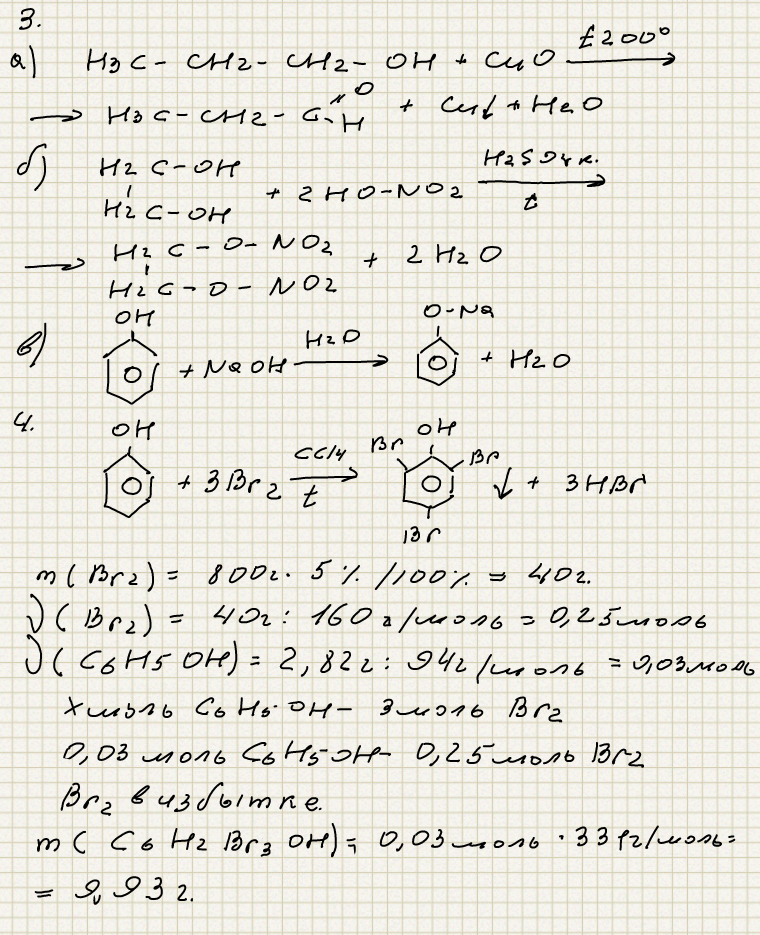 3.
а) H3C - CH2 - CH2 - OH + CuO t 200° →
→ H3C - CH2 - C =O -H + Cu↓ + H2O
б) H2C - OH
H2C - OH + 2HO-NO2 H2SO4 к. t →
→ H2C - O - NO2
H2C - O - NO2 + 2H2O
в) OH + NaOH H2O → O-Na + H2O
4.
OH + 3Br2 CCl4 t → Br OH Br Br ↓ + 3HBr
m(Br2) = 800г· 5% /100% = 40г.
ν(Br2) = 40г : 160г/моль = 0,25моль
ν(C6H5OH) = 2,82г : 94г/моль = 0,03моль
х моль C6H5·OH - 3моль Br2
0,03 моль C6H5-OH - 0,25моль Br2
Br2 в избытке.
m(C6H2Br3OH) = 0,03моль · 331г/моль=
= 9,93г.